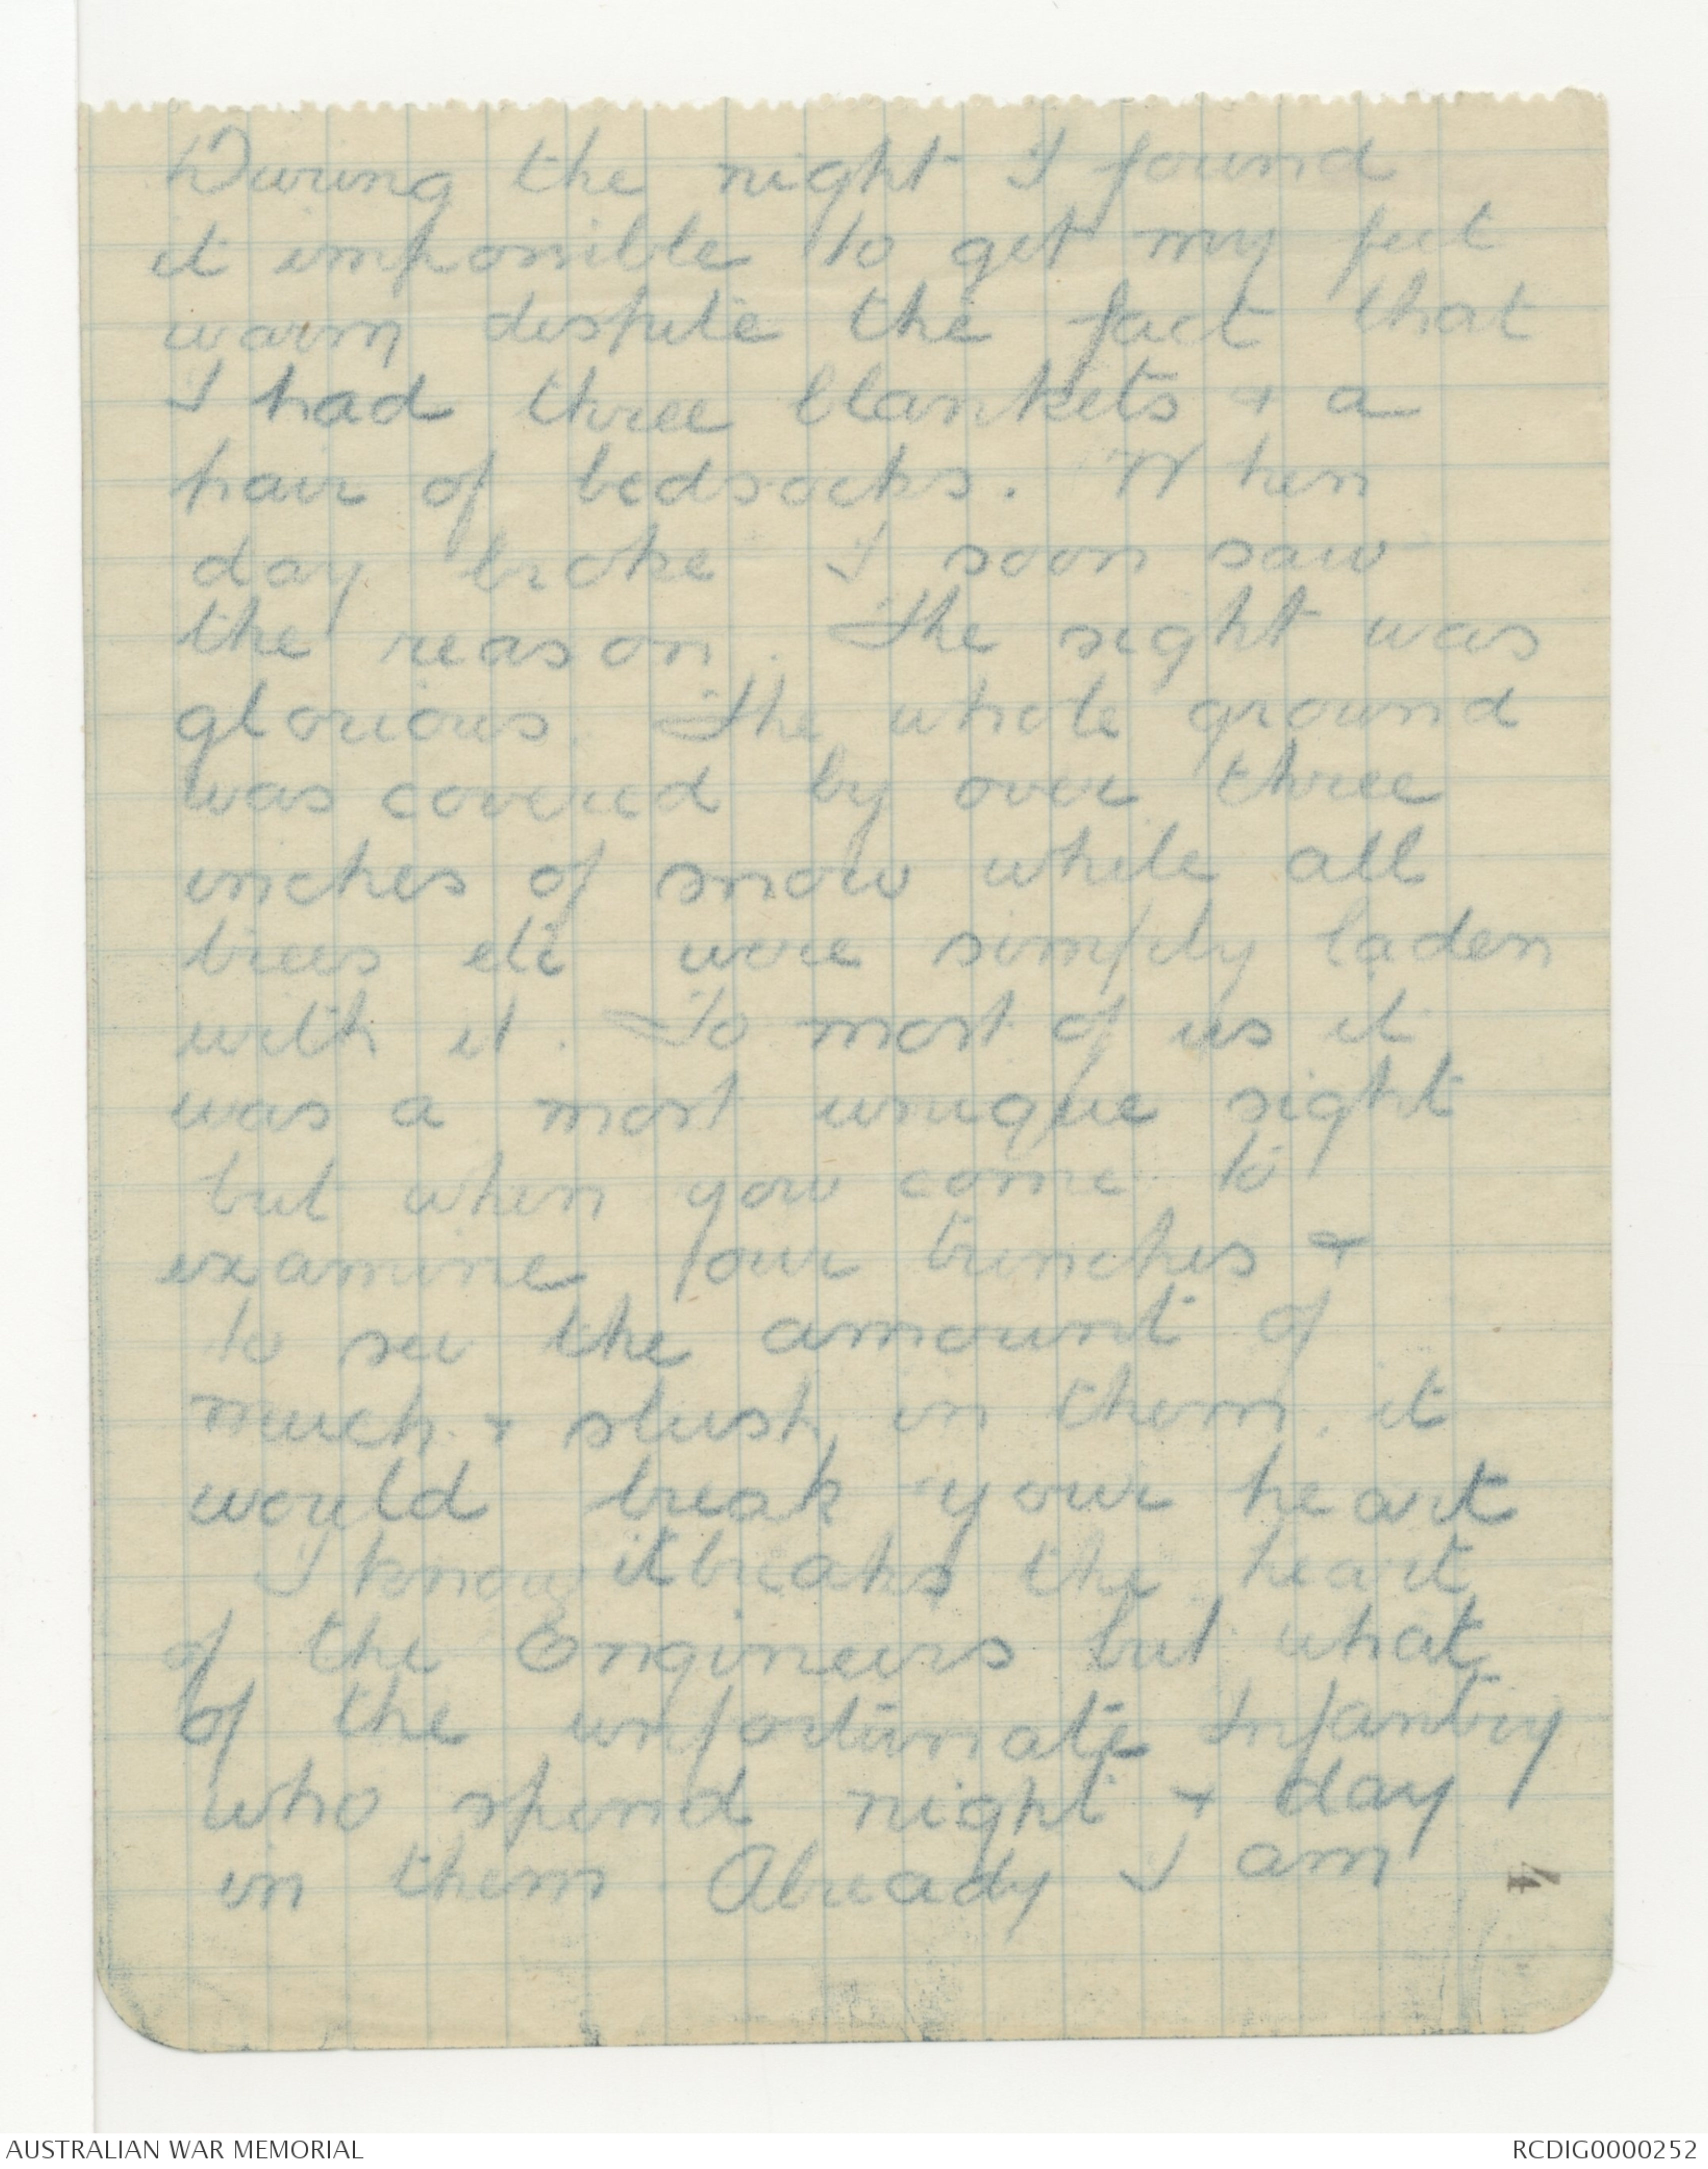 During the night I found
it impossible to get my feet
warm despite the fact that
I had three blankets + a
pair of bedsocks. When
day broke I soon saw
the reason. The sight was
glorious. The whole ground
was covered by over three
inches of snow while all
trees etc were simply laden
with it. To most of us it
was a most unique sight
but when you come to
examine our trenches +
to see the amount of
much + slush in them, it
would break your heart
I know it breaks the heart
of the Engineers but what
of the unfortunate Infantry
who spend night + day
in them. Already I am
4
AUSTRALIAN WAR MEMORIAL
RCDIG0000252